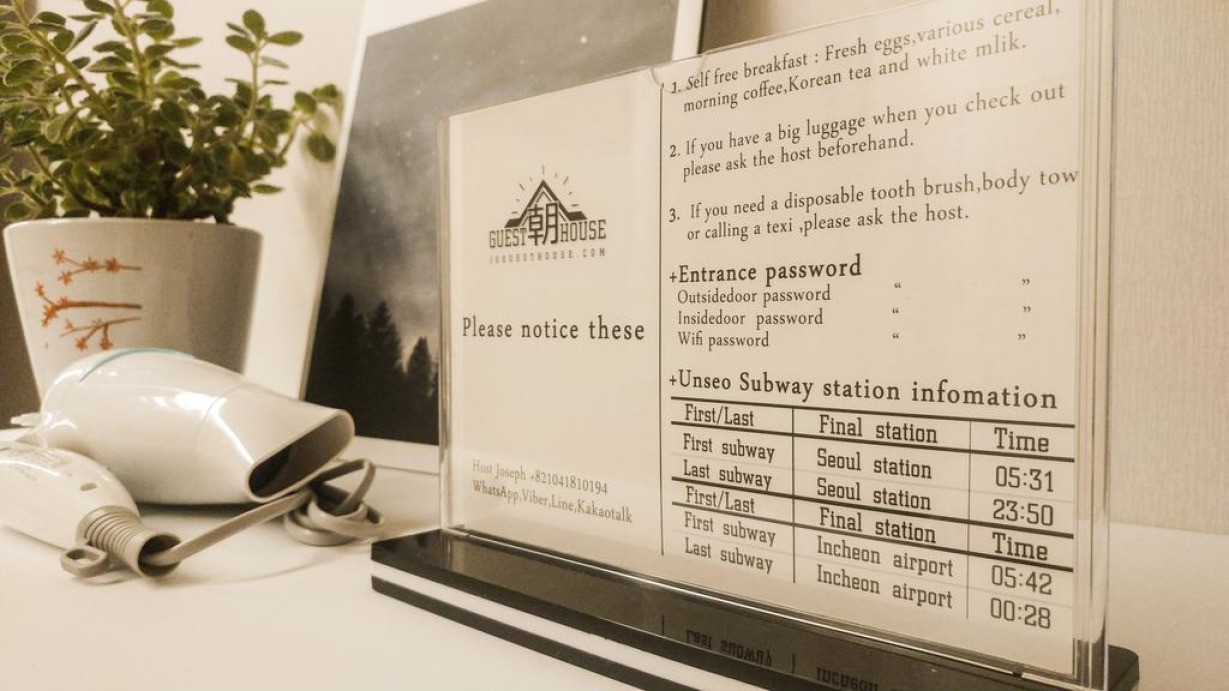 GUEST朝HOUSE
JOGUESTHOUSE.COM
Please notice these
Host Joseph +821041810194
WhatsApp,Viber,Line,Kakaotalk
1. Self free breakfast : Fresh eggs,various cereal,
morning coffee,Korean tea and white mlik.
2. If you have a big luggage when you check out
please ask the host beforehand.
3. If you need a disposable tooth brush,body tow
or calling a texi ,please ask the host.
+Entrance password
Outsidedoor password “ ”
Insidedoor password “ ”
Wifi password “ ”
+Unseo Subway station infomation
First/Last Final station Time
First subway Seoul station 05:31
Last subway Seoul station 23:50
First/Last Final station Time
First subway Incheon airport 05:42
Last subway Incheon airport 00:28